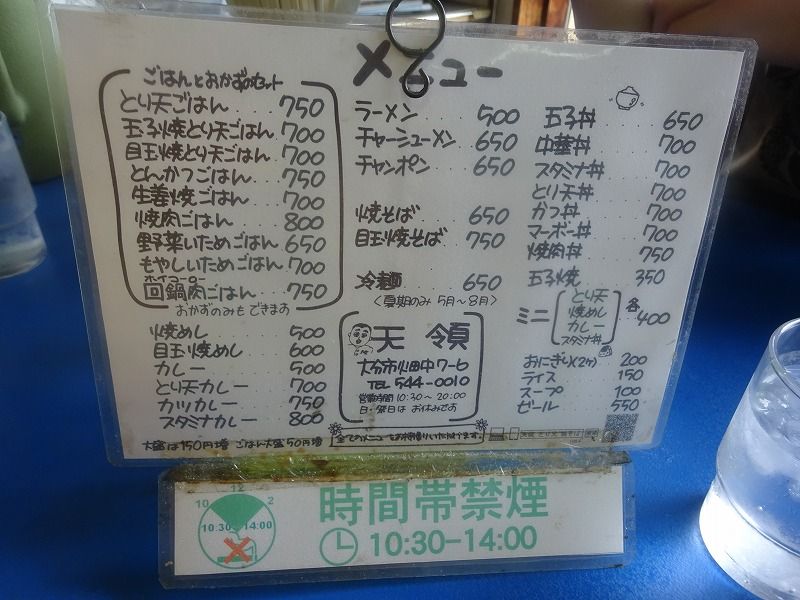 メニュー
ごはんとおかずのセット
とり天ごはん 750
玉子焼とり天ごはん 700
目玉焼とり天ごはん 700
とんかつごはん 750
生姜焼ごはん 700
焼肉ごはん 800
野菜いためごはん 650
もやしいためごはん 700
ホイコーロー
回鍋肉ごはん 750
おかずのみもできます
焼めし 500
目玉焼めし 600
カレー 500
とり天カレー 700
カツカレー 750
スタミナカレー 800
大盛は150円増 ごはん大盛50円増
ラーメン 500
チャーシューメン 650
チャンポン 650
焼そば 650
目玉焼そば 750
冷麺 650
〈夏期のみ 5月〜8月〉
天領
大分市畑中7-6
TEL 544-0010
営業時間 10:30〜20:00
日・祭日は お休みです
全てのメニューお持帰りいただけます。
玉子丼 650
中華丼 700
スタミナ丼 700
とり天丼 700
カツ丼 700
マーボー丼 700
焼肉丼 750
玉子焼 350
ミニ
とり天
焼めし
カレー
スタミナ丼
各400
おにぎり(2ケ) 200
ライス 150
スープ 100
ビール 550
12
10 2
10:30 14:00
時間帯禁煙
10:30-14:00